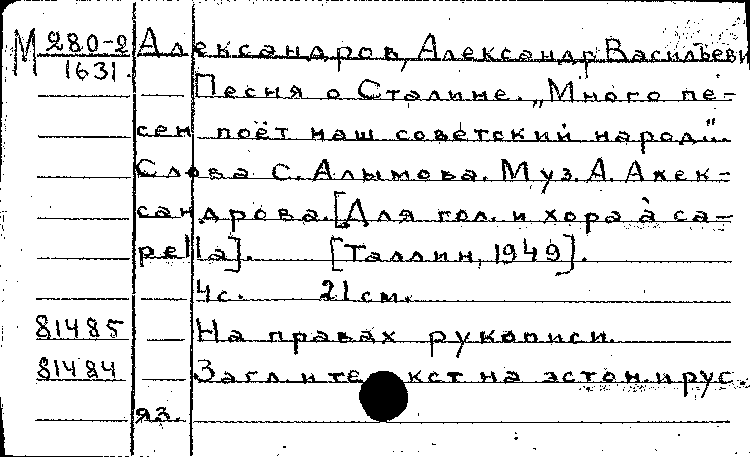 М 280-2 Александров, Александр Васильеви
1631.
Песня о Сталине. „Много пе-
сен поёт наш советский народ".
Слова С. Алымова. Муз. А. Алек-
сандрова. [Для гол. и хора à ca-
pella]. [Таллин, 1949].
4 с. 21 см.
81485 На правах рукописи.
81484 Загл. и текст на эстон. и рус.
яз.